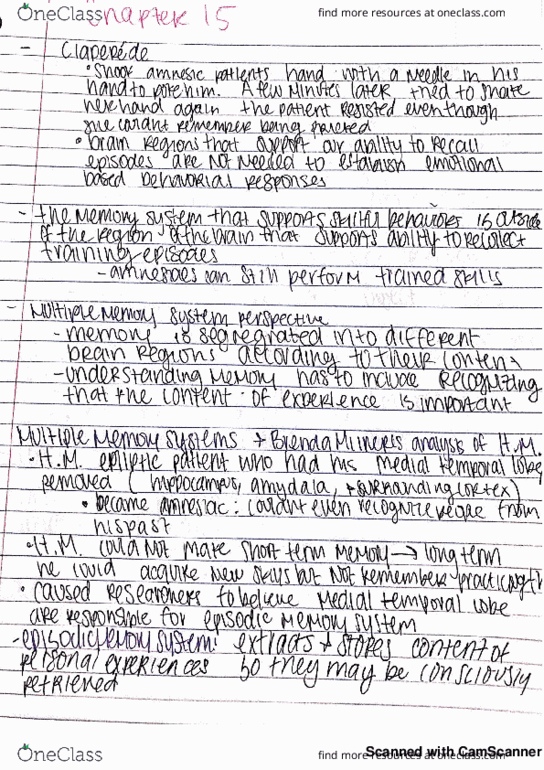 OneClass
find more resources at oneclass.com
Chapter 15
- Claparéde
• Shook amnesic patients hand with a needle in his
hand to poke him. A few minutes later, tried to shake
her hand again the patient resisted even though
she couldnt remember being pricked
• brain regions that support our ability to recall
episodes are NOT needed to establish emotional
based behaviorial responses
- the memory system that supports skillful behaviors is outside
of the region of the brain that supports ability to recollect
training episodes
- amnesiacs can still perform trained skills
- Multiple memory system perspective
- memory is segregrated into different
brain regions according to their content
- understanding memory has to include recognizing
that the content of experience is important
Multiple Memory Systems + Brenda Milner's analysis of H.M.
• H.M. epliptic patient who had his medial temporal lobe
removed (hippocampus, amydala, + surrounding cortex)
• became amnesiac: couldnt even recognize people from
his past
• H.M. could not make short term memory → long term
he could acquire new skills but not remember practicing th
• caused researchers to believe medial temporal lobe
are responsible for episodic memory system
- episodic memory system: extracts + stores content of
personal experiences so they may be consciously
retrieved
OneClass
find more resources at oneclass.com
Scanned with CamScanner